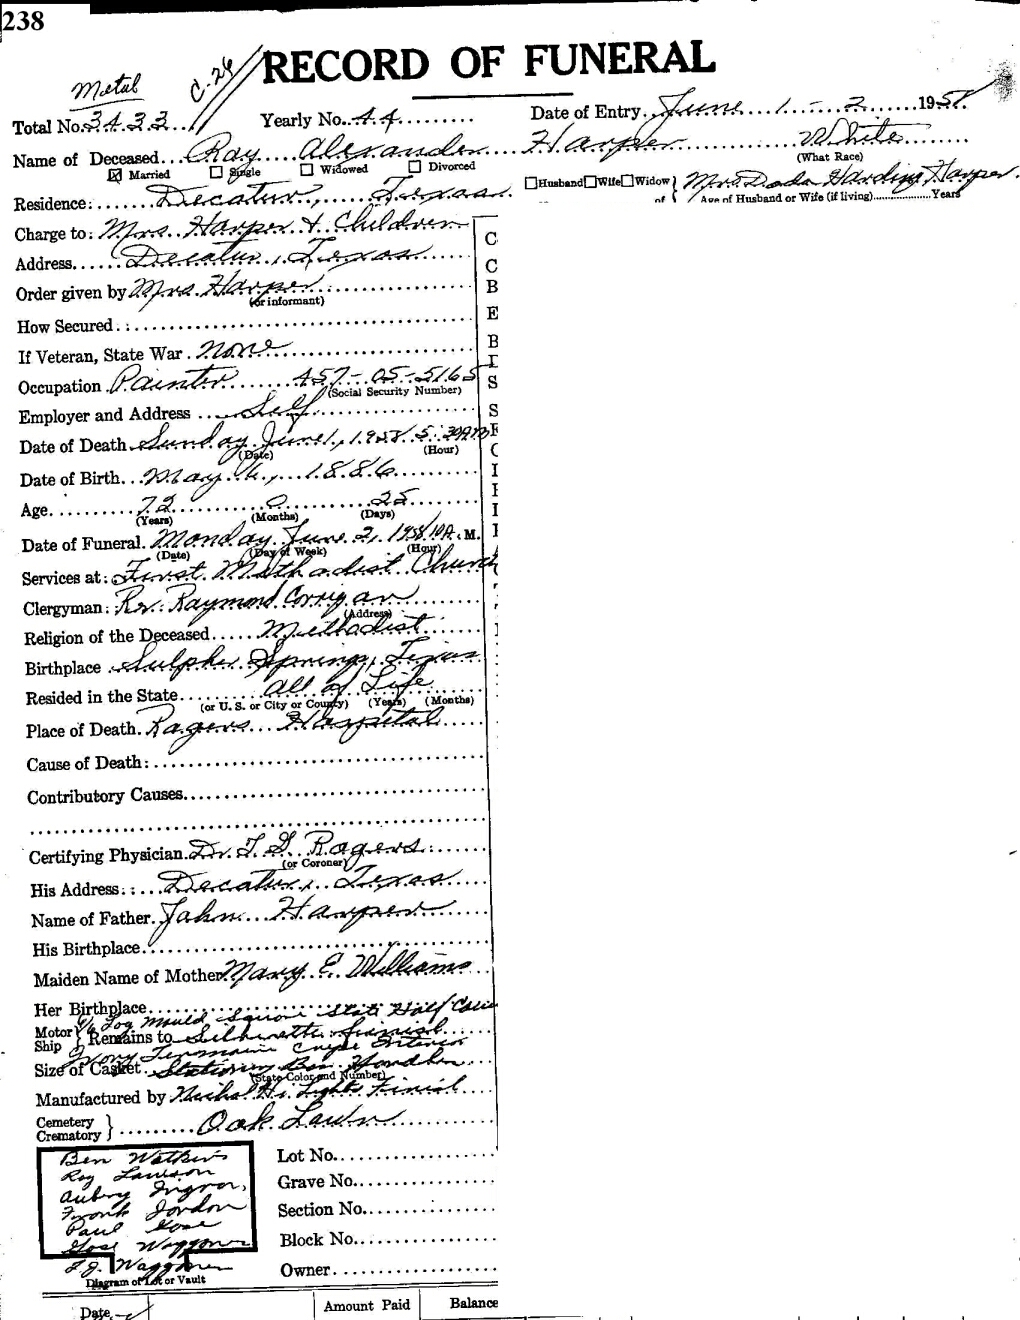 238
RECORD OF FUNERAL
Metal C-26
Total No. 3433 Yearly No. 44 Date of Entry June 1 - 2 1958
Name of Deceased Ray Alexander Harper White
(What Race)
☒ Married ☐ Single ☐ Widowed ☐ Divorced
☐ Husband ☐ Wife ☐ Widow of } Mrs. Doda Harding Harper
Residence: Decatur, Texas
Age of Husband or Wife (if living) Years
Charge to: Mrs. Harper & Children
Address Decatur, Texas
Order given by Mrs. Harper
(or informant)
How Secured
If Veteran, State War None
Occupation Painter 457-05-5165
(Social Security Number)
Employer and Address Self
Date of Death Sunday June 1, 1958 5:30AM
(Date) (Hour)
Date of Birth May 6, 1886
Age 72 0 25
(Years) (Months) (Days)
Date of Funeral Monday June 2, 1958 10A.M.
(Date) (Day of Week) (Hour)
Services at: First Methodist Church
Clergyman: Rev. Raymond Corrigan
(Address)
Religion of the Deceased Methodist
Birthplace Sulpher Springs, Texas
Resided in the State all of Life
(or U. S. or City or County) (Years) (Months)
Place of Death Rogers Hospital
Cause of Death:
Contributory Causes
Certifying Physician Dr. T G Rogers
(or Coroner)
His Address: Decatur, Texas
Name of Father John Harper
His Birthplace
Maiden Name of Mother Mary E. Williams
Her Birthplace
Mould Square State Half Couch
Motor Ship } Remains to Silhouette Finish
Ivory Crepe Interior
Size of Casket Stationary Bar Handles
(State Color and Number)
Manufactured by Finish
Cemetery
Crematory } Oak Lawn
Ben Watkins
Roy Lawson
Aubry
Frank Jordon
Paul Gose
Gose Waggoner
Waggoner
Diagram of Lot or Vault
Lot No.
Grave No.
Section No.
Block No.
Owner
Date Amount Paid Balance